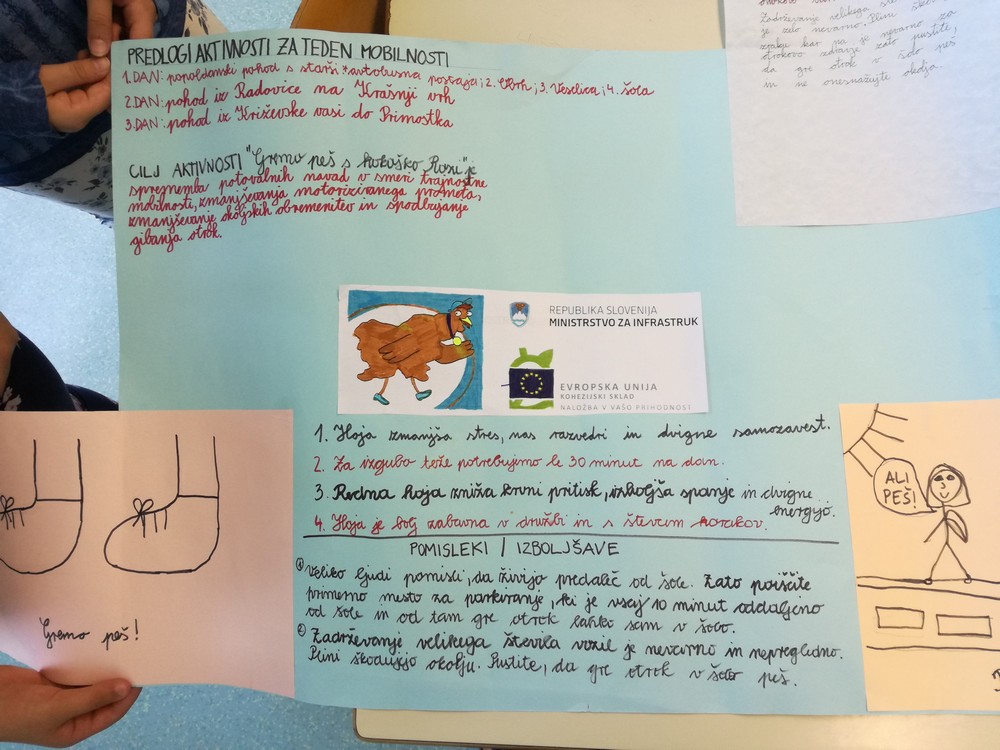 PREDLOGI AKTIVNOSTI ZA TEDEN MOBILNOSTI
1. DAN: popoldanski pohod s starši 1. avtobusna postaja; 2. Vrh; 3. Veselica; 4. šola
2. DAN: pohod iz Radovice na Krašnji vrh
3. DAN: pohod iz Križevske vasi do Primostka
CILJ AKTIVNOSTI "Gremo peš s kokoško Rozi" je
sprememba potovalnih navad v smeri trajnostne
mobilnosti, zmanjševanja motoriziranega prometa,
zmanjševanje okoljskih obremenitev in spodbujanje
gibanja otrok.
Zadrževanje velikega
je zelo nevarno. Plini
zraku kar pa je nevarno za
otrokovo zdravje zato pustite,
da gre otrok v šolo peš
in ne onesnažujte okolja.
REPUBLIKA SLOVENIJA
MINISTRSTVO ZA INFRASTRUK
EVROPSKA UNIJA
KOHEZIJSKI SKLAD
NALOŽBA V VAŠO PRIHODNOST
1. Hoja zmanjša stres, nas razvedri in dvigne samozavest.
2. Za izgubo teže potrebujemo le 30 minut na dan.
3. Redna hoja zniža krvni pritisk, izboljša spanje in dvigne
energijo.
4. Hoja je bolj zabavna v družbi in s štetjem korakov.
POMISLEKI / IZBOLJŠAVE
① Veliko ljudi pomisli, da živijo predaleč od šole. Zato poiščite
primerno mesto za parkiranje, ki je vsaj 10 minut oddaljeno
od šole in od tam gre otrok lahko sam v šolo.
② Zadrževanje velikega števila vozil je nevarno in nepregledno.
Plini škodujejo okolju. Pustite, da gre otrok v šolo peš.
Gremo peš!
ALI
PEŠ!